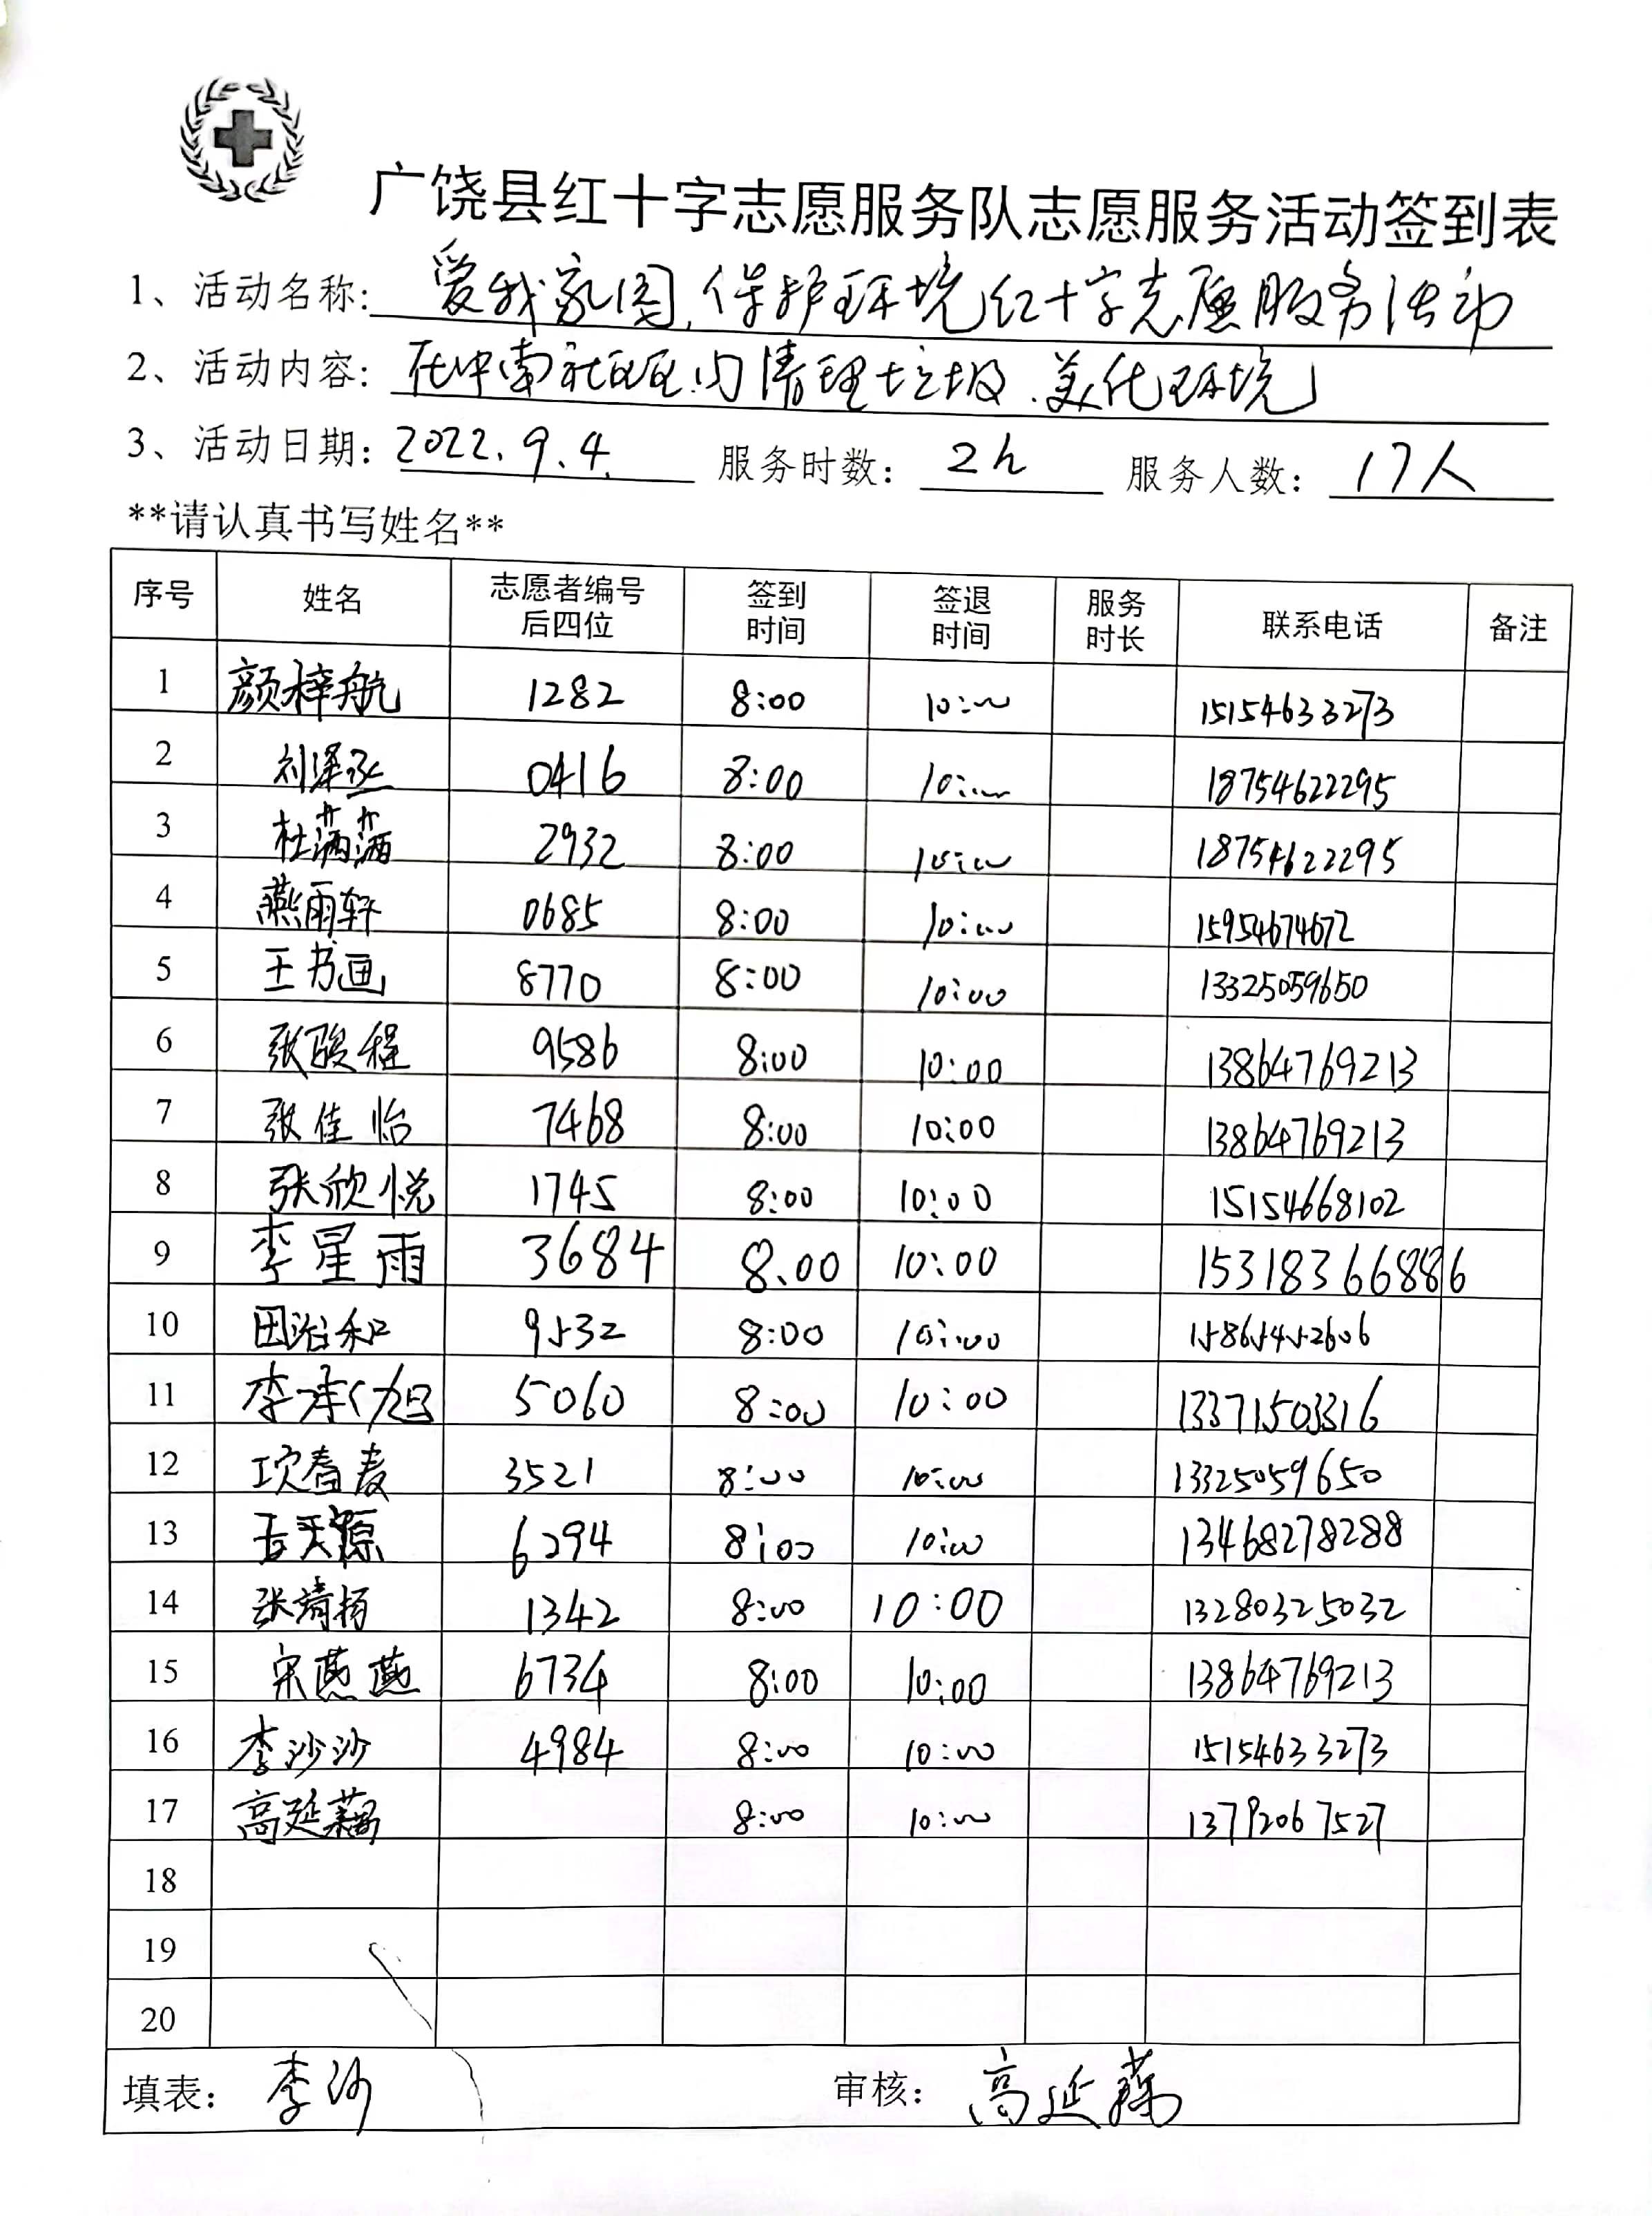 广饶县红十字志愿服务队志愿服务活动签到表
1、活动名称: 爱我家园,保护环境红十字志愿服务活动
2、活动内容: 在中南社区内清理垃圾.美化环境
3、活动日期: 2022.9.4. 服务时数: 2h 服务人数: 17人
**请认真书写姓名**
序号 姓名 志愿者编号后四位 签到时间 签退时间 服务时长 联系电话 备注
1 颜梓航 1282 8:00 10:00 15154633273
2 刘泽丞 0416 8:00 10:00 18754622295
3 杜满满 2932 8:00 10:00 18754622295
4 燕雨轩 0685 8:00 10:00 15954674672
5 王书画 8770 8:00 10:00 13325059650
6 张骏程 9586 8:00 10:00 13864769213
7 张佳怡 7468 8:00 10:00 13864769213
8 张欣悦 1745 8:00 10:00 15154668102
9 李星雨 3684 8:00 10:00 15318366886
10 田治和 9532 8:00 10:00 15865452606
11 李承旭 5060 8:00 10:00 13371503316
12 项春麦 3521 8:00 10:00 13325059650
13 6294 8:00 10:00 13468278288
14 张靖扬 1342 8:00 10:00 13280325032
15 宋燕燕 6734 8:00 10:00 13864769213
16 李沙沙 4984 8:00 10:00 15154633273
17 高延藕 8:00 10:00 13792067527
18
19
20
填表: 李沙 审核: 高延藕